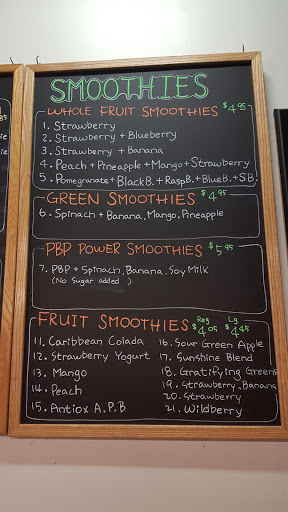 SMOOTHIES
WHOLE FRUIT SMOOTHIES $4.95
1. Strawberry
2. Strawberry + Blueberry
3. Strawberry + Banana
4. Peach + Pineapple + Mango + Strawberry
5. Pomegranate + BlackB. + RaspB. + BlueB. + SB
GREEN SMOOTHIES $4.95
6. Spinach + Banana, Mango, Pineapple
PBP POWER SMOOTHIES $5.95
7. PBP + Spinach, Banana, Soy Milk
(No Sugar added)
FRUIT SMOOTHIES Reg $4.05 Lg $4.45
11. Caribbean Colada
12. Strawberry Yogurt
13. Mango
14. Peach
15. Antiox A.P.B
16. Sour Green Apple
17. Sunshine Blend
18. Gratifying Greens
19. Strawberry, Banana
20. Strawberry
21. Wildberry